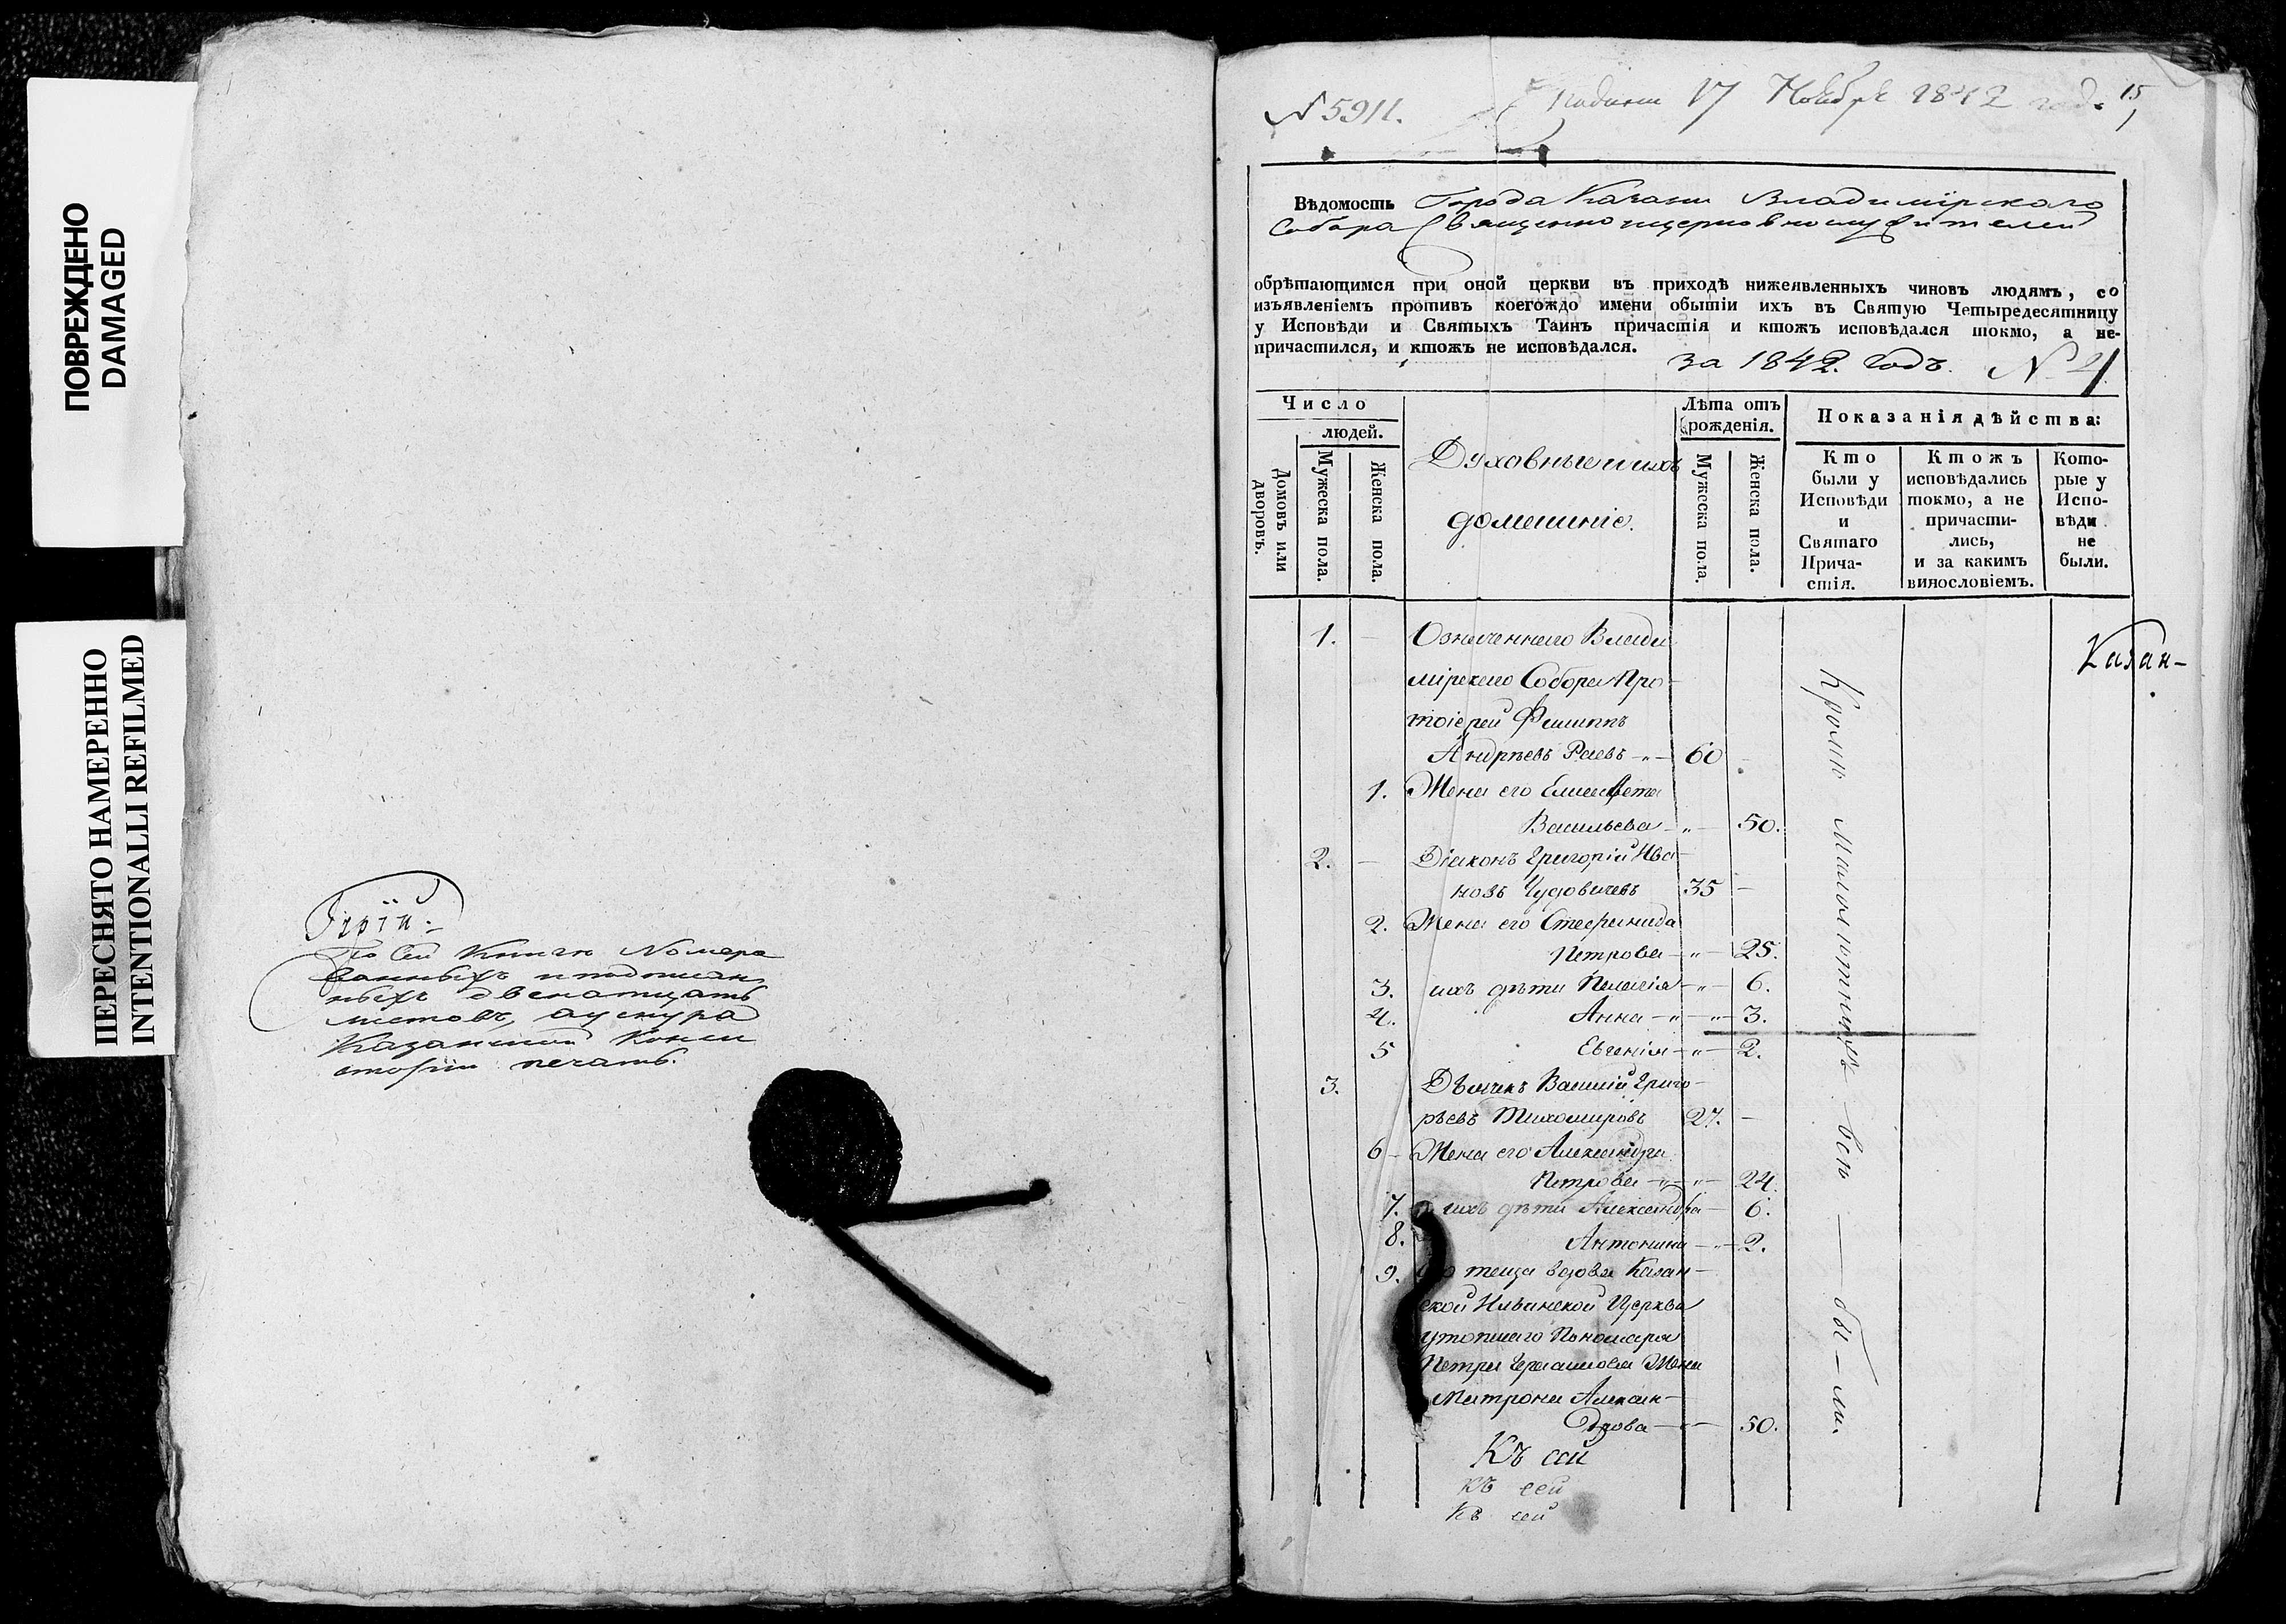 ПОВРЕЖДЕНО
DAMAGED
ПЕРЕСНЯТО НАМЕРЕННО
INTENTIONALLI REFILMED
По сей книге Номеро
ванныхъ и подписан
ныхъ двенатцать
листовъ, а у шнура
Казанской Конси
сторіи печать.
№ 5911.
17 Ноября 1842 год. 15
Вѣдомость Города Казани Владимірскаго
Собора Священноицерковнослужителей
обрѣтающимся при оной церкви въ приходѣ нижеявленныхъ чиновъ людямъ, со
изъявленіемъ противъ коегождо имени обытіи ихъ въ Святую Четыредесятницу
у Исповѣди и Святыхъ Таинъ причастія и ктожъ исповѣдался токмо, а не-
причастился, и ктожъ не исповѣдался.
за 1842. Годъ. №
Число
людей.
Домовъ или дворовъ.
Мужеска пола.
Женска пола.
Духовные и ихъ
домашніе.
Лѣта отъ
рожденія.
Мужска пола.
Женска пола.
Показанія дѣйства:
Кто
были у
Исповѣди
и
Святаго
Прича-
стія.
Ктожъ
исповѣдались
токмо, а не
причасти-
лись,
и за какимъ
винословіемъ.
Кото-
рые у
Испо-
вѣди
не
были.
1. Означеннаго Влади
мірскаго Собора Про
тоіерей Филиппъ
Андреевъ Раевъ 60
1. Жена его Елисавета
Васильева 50.
2. Діаконъ Григорій Ива
новъ Чудовичевъ 35
2. Жена его Стефанида
Петрова 25.
3. ихъ дѣти Пелагія 6.
4. Анна 3.
5 Евгенія 2.
3. Дьячекъ Василій Григо-
рьевъ Тихомировъ 27.
6 Жена его Александра
Петрова 24.
7. ихъ дѣти Александра 6.
8. Антонина 2.
9. теща вдова Казан-
ской Ильинской Церкви
утопшаго Пономаря
Петра Жена
Матрона Алексан-
дрова 50.
Кромѣ малолѣтнихъ всѣ бы-ли.
Казан-
Къ сей
къ сей
Къ сей